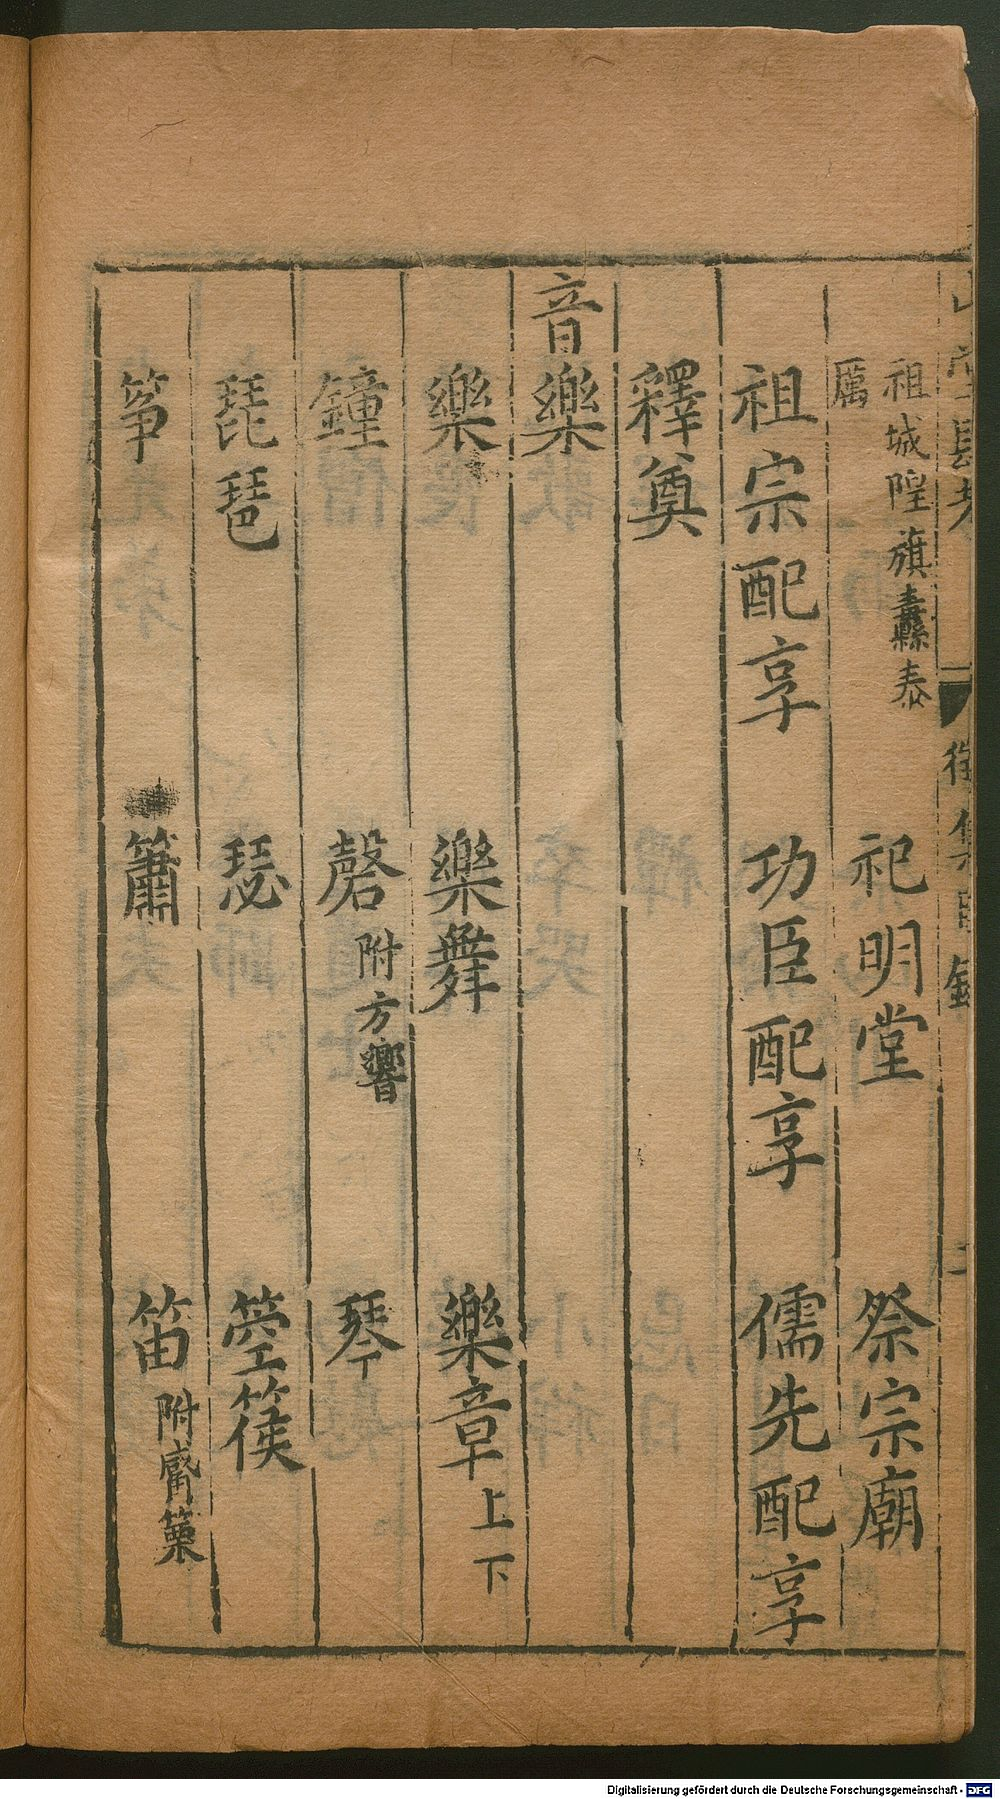 祖城隍旗纛泰
厲
祀明堂
祭宗廟
祖宗配享
功臣配享
儒先配享
釋奠
音樂
樂
樂舞
樂章上下
鐘
磬附方響
琴
琵琶
瑟
箜篌
箏
簫
笛附觱篥
Digitalisierung gefördert durch die Deutsche Forschungsgemeinschaft - DFG